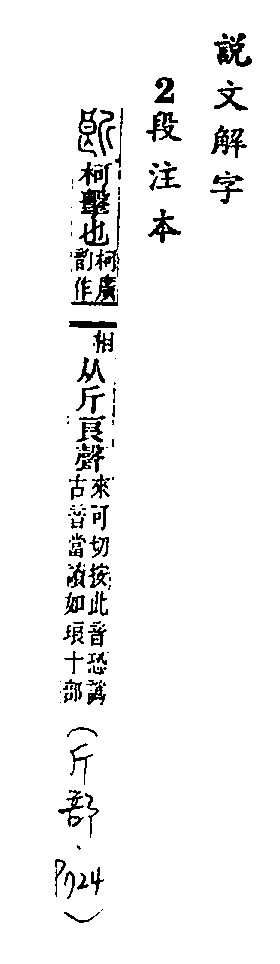 說文解字
2段注本
柯擊也柯廣韵作
相从斤良聲來可切按此音恐譌古音當讀如琅十部(斤部.P724)